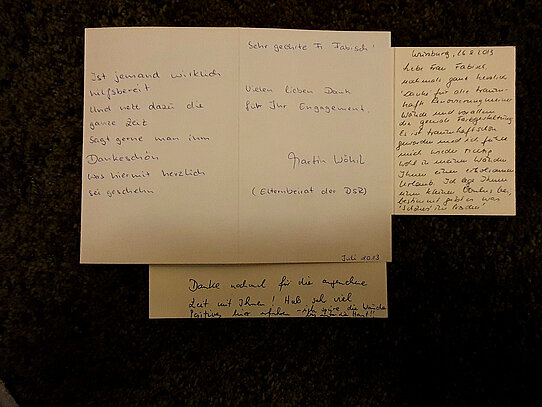 Ist jemand wirklich
hilfsbereit
Und nett dazu die
ganze Zeit
Sagt gerne man ihm
Dankeschön
was hiermit herzlich
sei geschehn
Sehr geehrte Fr. Fabisch!
Vielen lieben Dank
für Ihr Engagement.
Martin Wöhrl
(Elternbeirat der DSZ)
Juli 2013
Würzburg, 26.8.2013
Liebe Frau Fabisch,
nochmals ganz herzlich
Danke für die traum-
hafte Renovierung meiner
Wände und vor allem
die geniale Farbgestaltung
Es ist traumhaft schön
geworden und ich fühle
mich wieder richtig
wohl in meinen Wänden
Ihnen einen erholsamen
Urlaub. Ich lege Ihnen
einen kleinen bei,
bestimmt gibt es was
Danke nochmal für die angenehme
Zeit mit Ihnen! Hab sehr viel
Positives hier